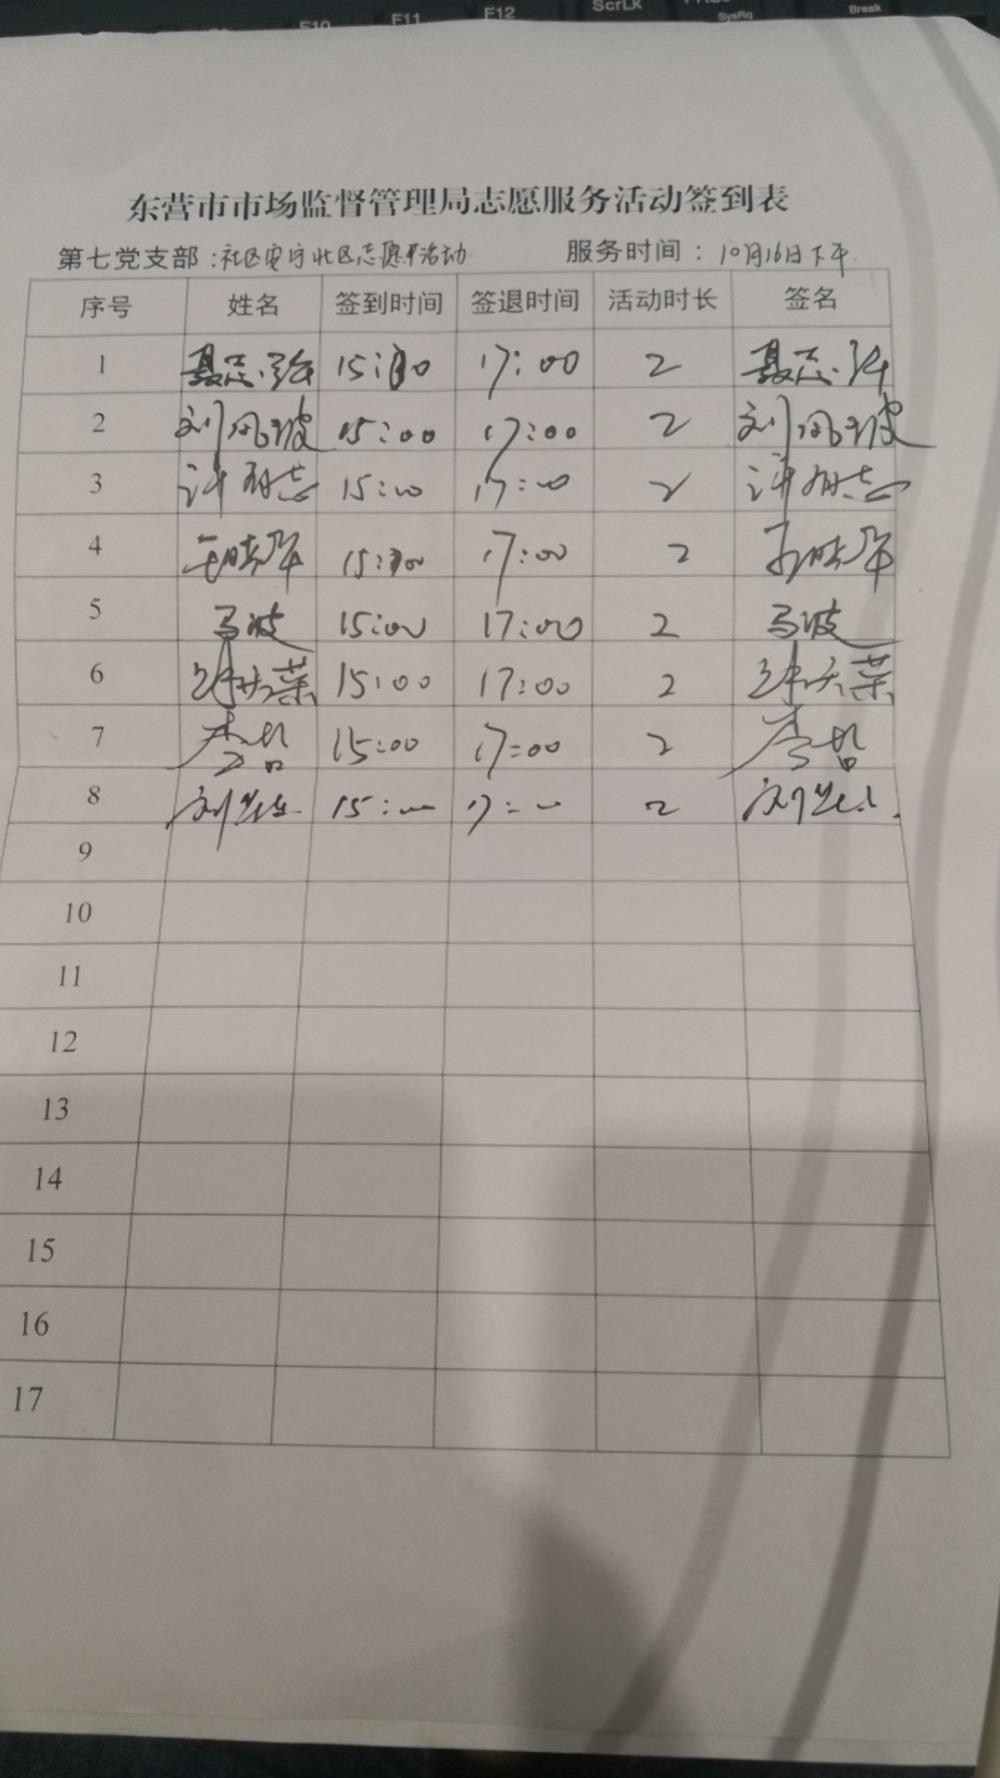 F10 F11 F12 ScrLk SysRq Break
东营市市场监督管理局志愿服务活动签到表
第七党支部：社区安宁北区志愿活动 服务时间：10月16日下午
序号 姓名 签到时间 签退时间 活动时长 签名
1 聂志强 15:00 17:00 2 聂志强
2 刘风波 15:00 17:00 2 刘风波
3 许有志 15:00 17:00 2 许有志
4 15:00 17:00 2
5 马波 15:00 17:00 2 马波
6 15:00 17:00 2
7 李哲 15:00 17:00 2 李哲
8 刘 15:00 17:00 2 刘
9
10
11
12
13
14
15
16
17